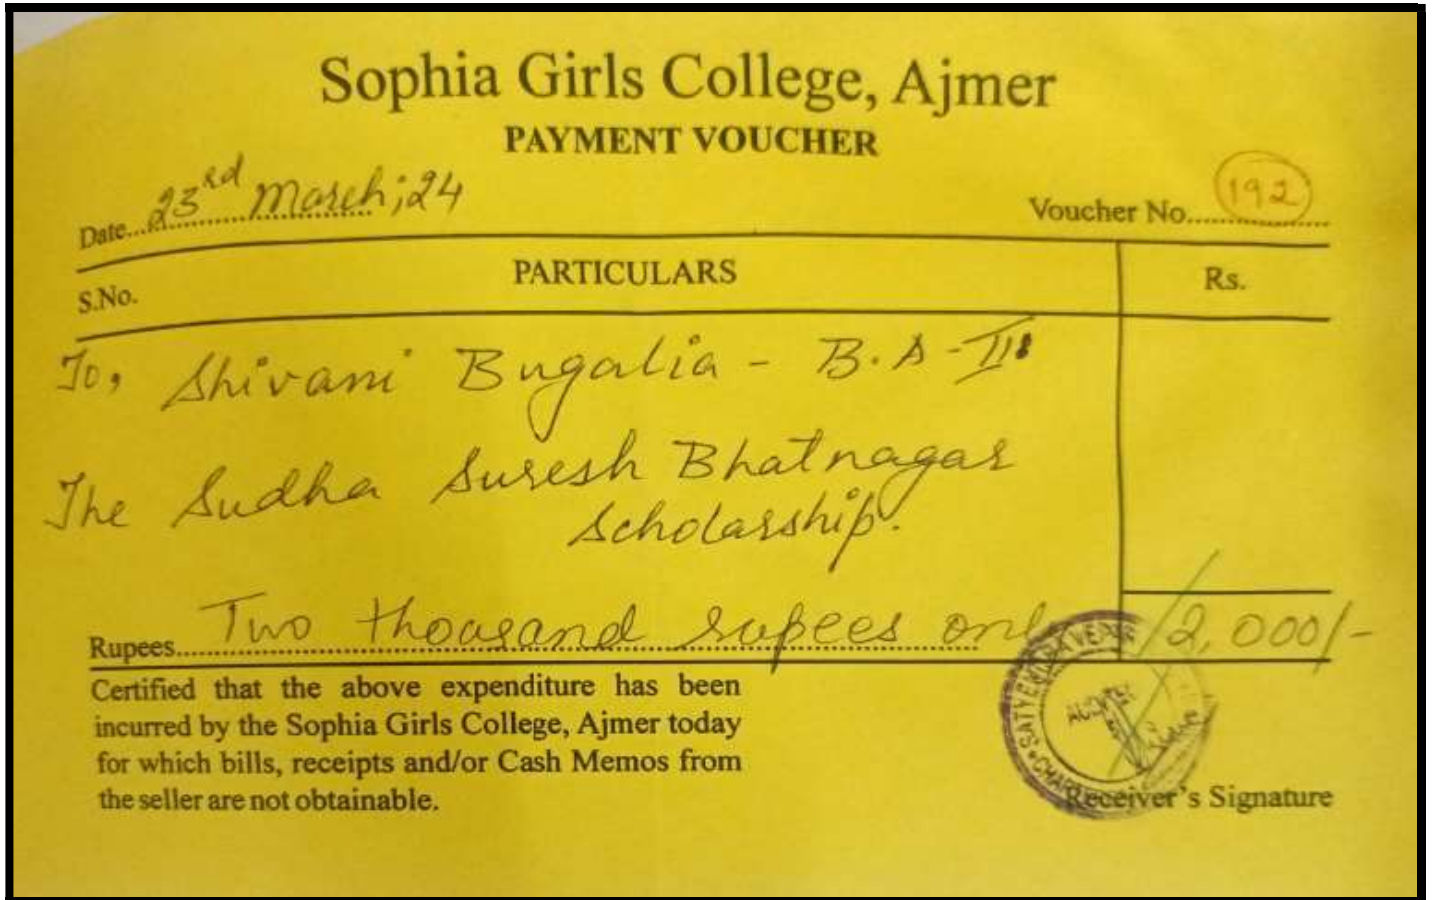 Sophia Girls College, Ajmer
PAYMENT VOUCHER
Date... 23rd March, 24
Voucher No. 192
S.No. PARTICULARS Rs.
To, Shivani Bugalia - B.A - III
The Sudha Suresh Bhatnagar
Scholarship.
Rupees Two thousand rupees only 2,000/-
Certified that the above expenditure has been
incurred by the Sophia Girls College, Ajmer today
for which bills, receipts and/or Cash Memos from
the seller are not obtainable.
Receiver's Signature